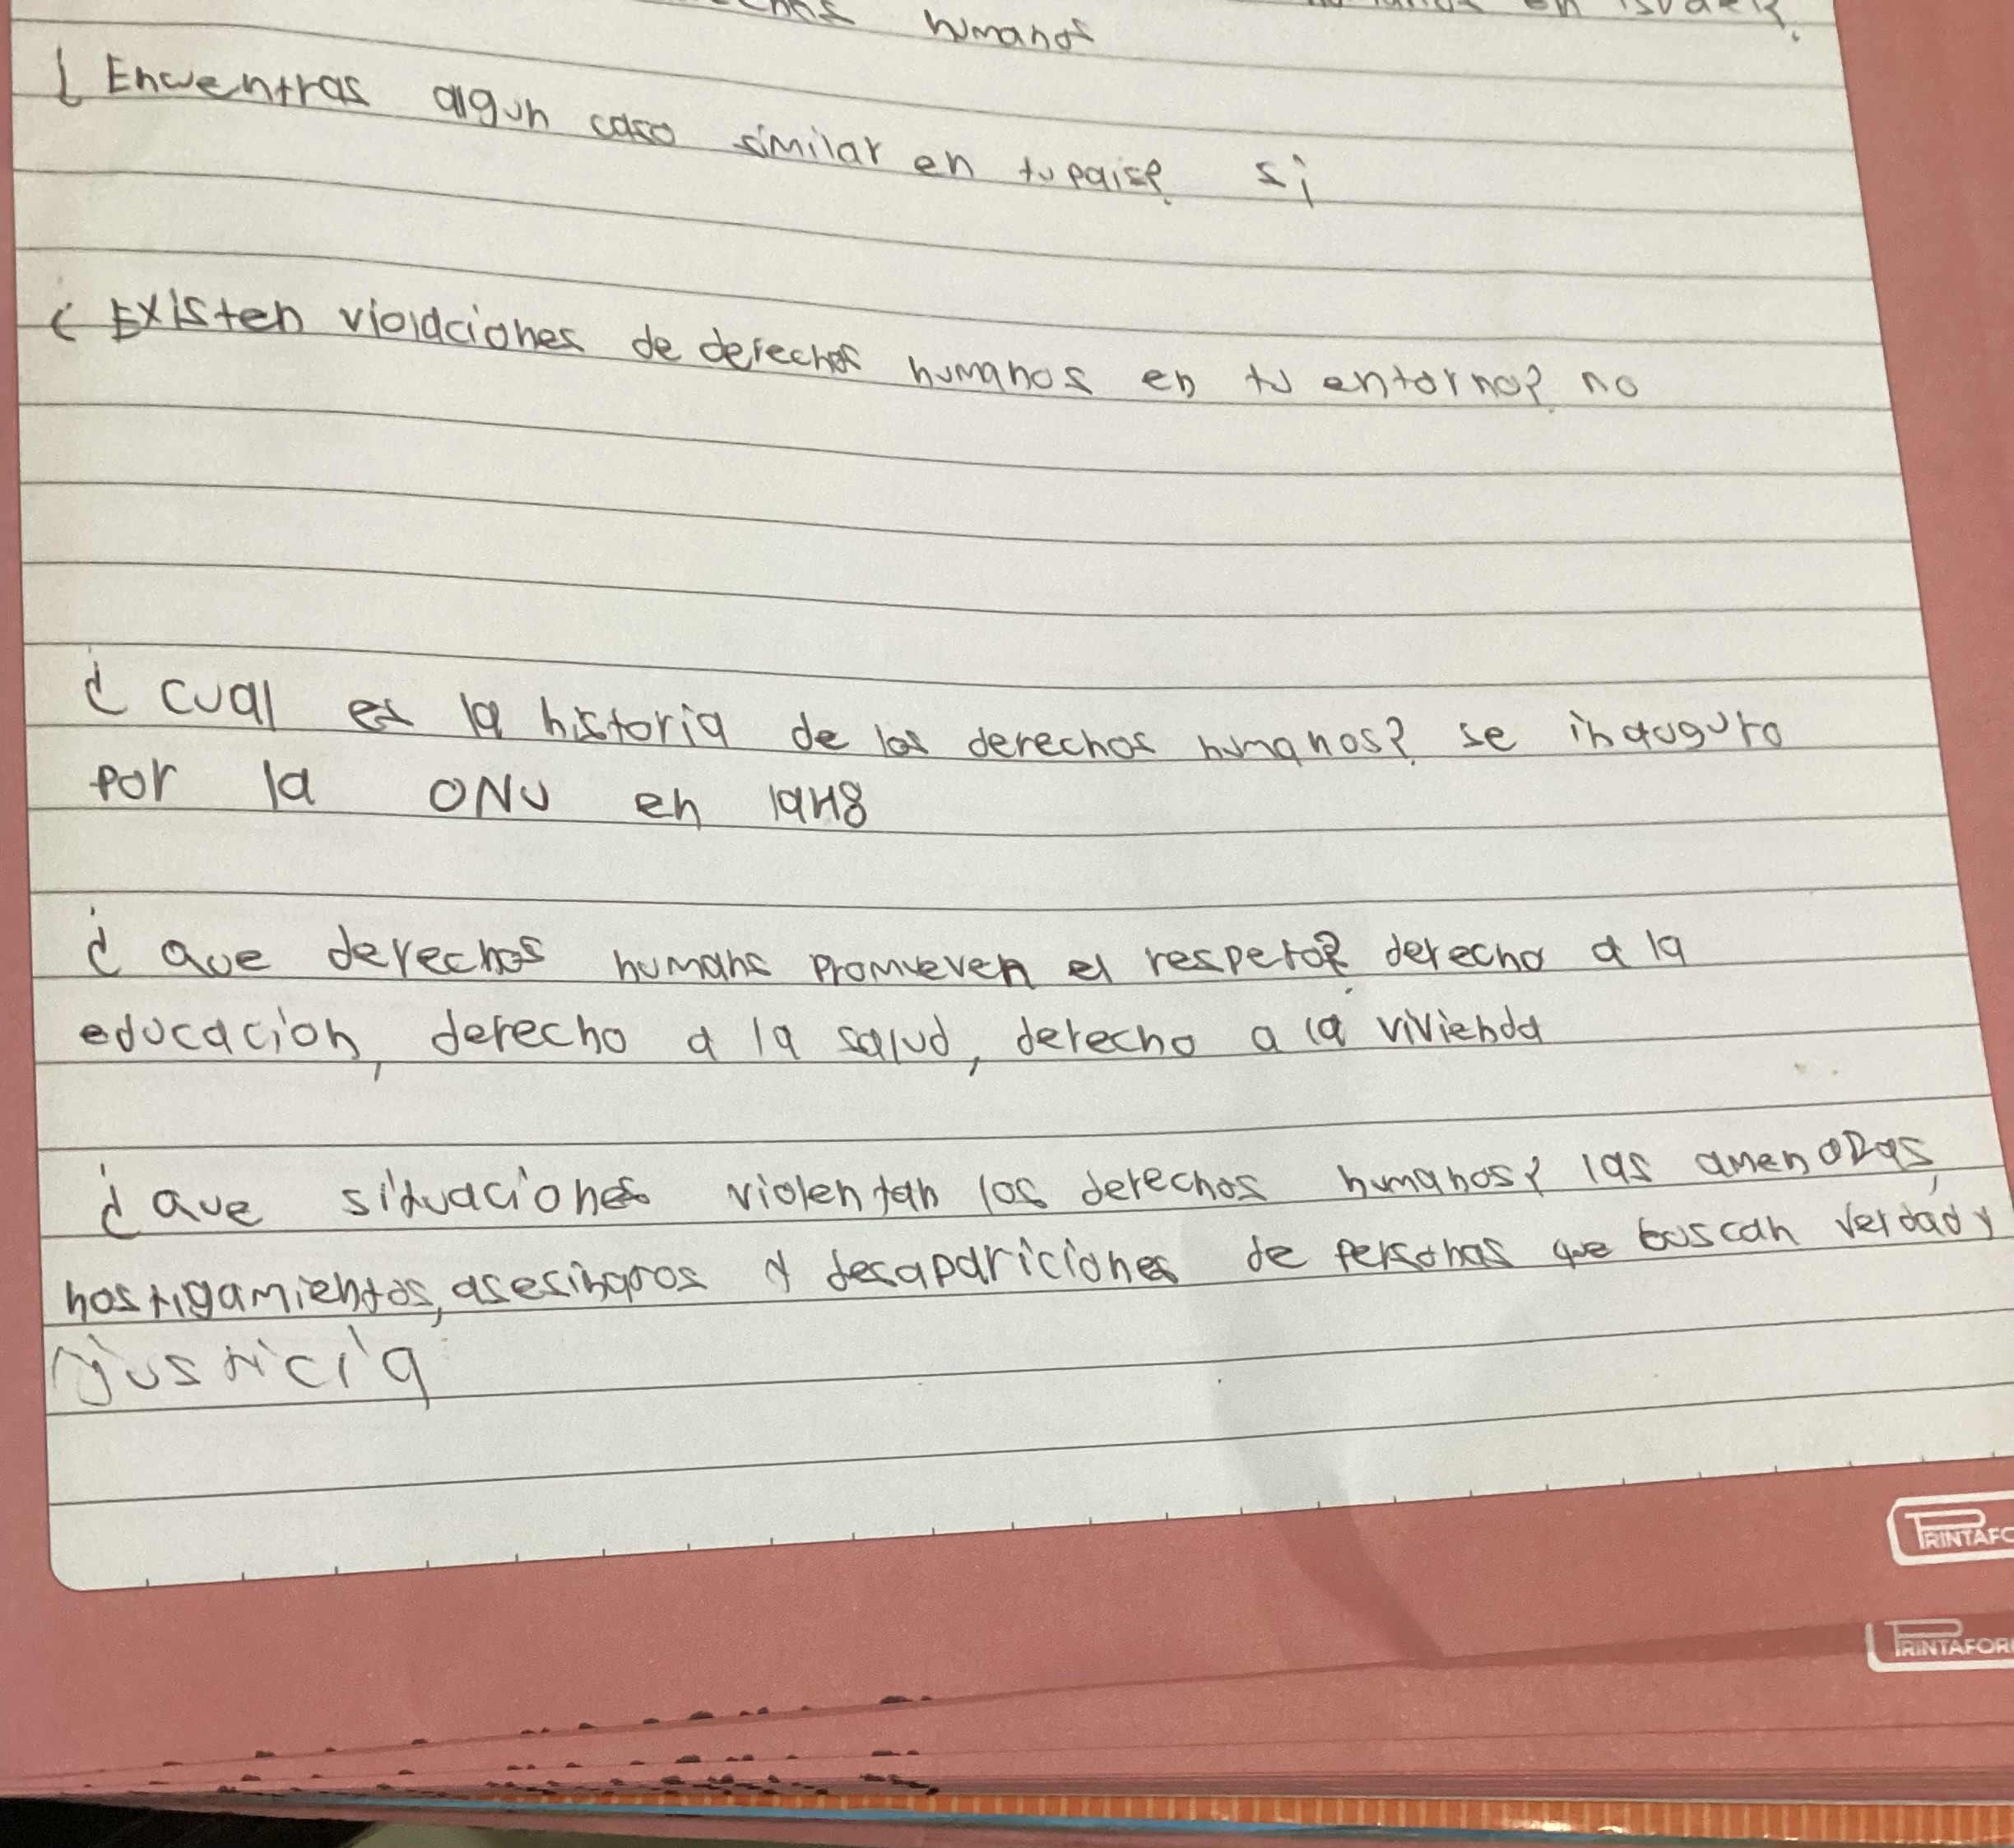 humanos en
humanos
¿Encuentras algun caso similar en tu pais? si
¿Existen violaciones de derechos humanos en tu entorno? no
¿cual es la historia de los derechos humanos? se inauguro
por la ONU en 1948
¿que derechos humans promueven el respeto? derecho a la
educacion, derecho a la salud, derecho a la vivienda
¿que situaciones violentan los derechos humanos? las amenazas,
hostigamientos, asesinatos y desapariciones de personas que buscan verdad y
justicia
PRINTAFO
PRINTAFOR